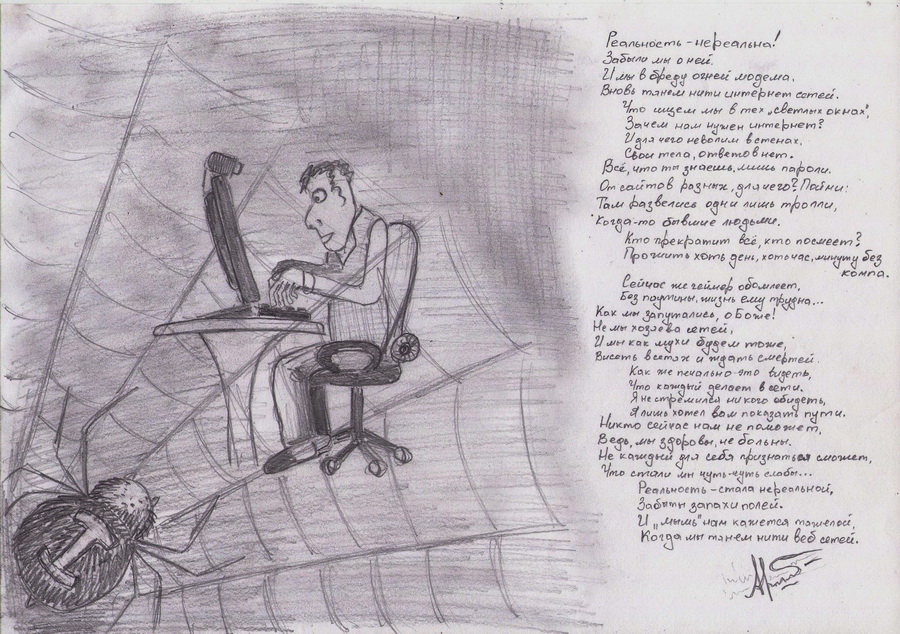 Реальность - нереальна!
Забыли мы о ней.
И мы в бреду огней модема,
Вновь тянем нити интернет сетей.
Что ищем мы в тех „светлых окнах",
Зачем нам нужен интернет?
И для чего неволим в стенах,
Свои тела, ответов нет.
Всё, что ты знаешь, лишь пароли.
От сайтов разных, для чего? Пойми:
Там развелись одни лишь тролли,
Когда-то бывшие людьми.
Кто прекратит всё, кто посмеет?
Прожить хоть день, хоть час, минуту без
компа.
Сейчас же геймер обомлеет,
Без паутины, жизнь ему трудна...
Как мы запутались, о Боже!
Не мы хозяева сетей,
И мы как мухи будем тоже,
Висеть в сетях и ждать смертей.
Как же печально это видеть,
Что каждый делает в сети.
Я не стремился никого обидеть,
Я лишь хотел вам показать пути.
Никто сейчас нам не поможет,
Ведь, мы здоровы, не больны.
Не каждый для себя признаться сможет,
Что стали мы чуть-чуть слабы...
Реальность - стала нереальной,
Забыты запахи полей.
И „мышь" нам кажется тяжелой,
Когда мы тянем нити веб сетей.